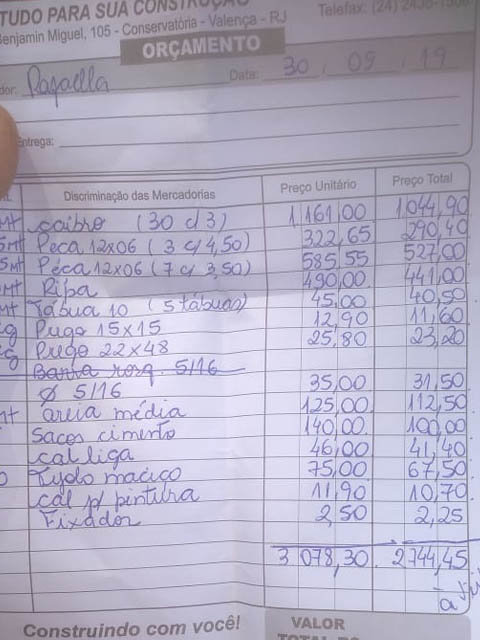 TUDO PARA SUA CONSTRUÇÃO
Benjamin Miguel, 105 - Conservatória - Valença - RJ
Telefax: (24) 2438-1306
ORÇAMENTO
dor: Rafaella Data: 30 . 09 . 19
Entrega:
Discriminação das Mercadorias Preço Unitário Preço Total
Mt caibro (30 c/3) 1.161,00 1.044,90
5Mt Peca 12x06 (3 c/4,50) 322,65 290,40
5Mt Péca 12x06 (7 c/3,50) 585,55 527,00
Mt Ripa 490,00 441,00
Mt Tábua 10 (5 tábuas) 45,00 40,50
Kg Prego 15x15 12,90 11,60
Kg Prego 22x48 25,80 23,20
Barra rosq. 5/16
Ø 5/16 35,00 31,50
Mt areia média 125,00 112,50
Sacos cimento 140,00 100,00
cal liga 46,00 41,40
Tijolo maciço 75,00 67,50
cal p/ pintura 11,90 10,70
Fixador 2,50 2,25
3 078,30 2744,45
a
Construindo com você!
VALOR